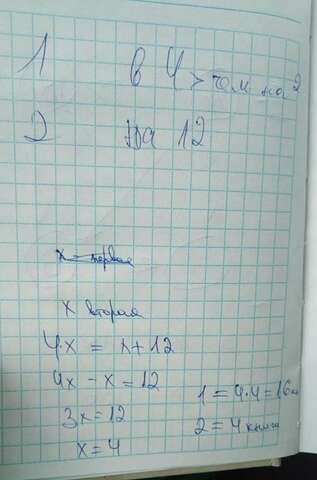 1 в 4 > чем на 2
2 на 12
x = первая
x вторая
4x = x + 12
4x - x = 12
3x = 12
x = 4
1 = 4·4 = 16 к
2 = 4 книги